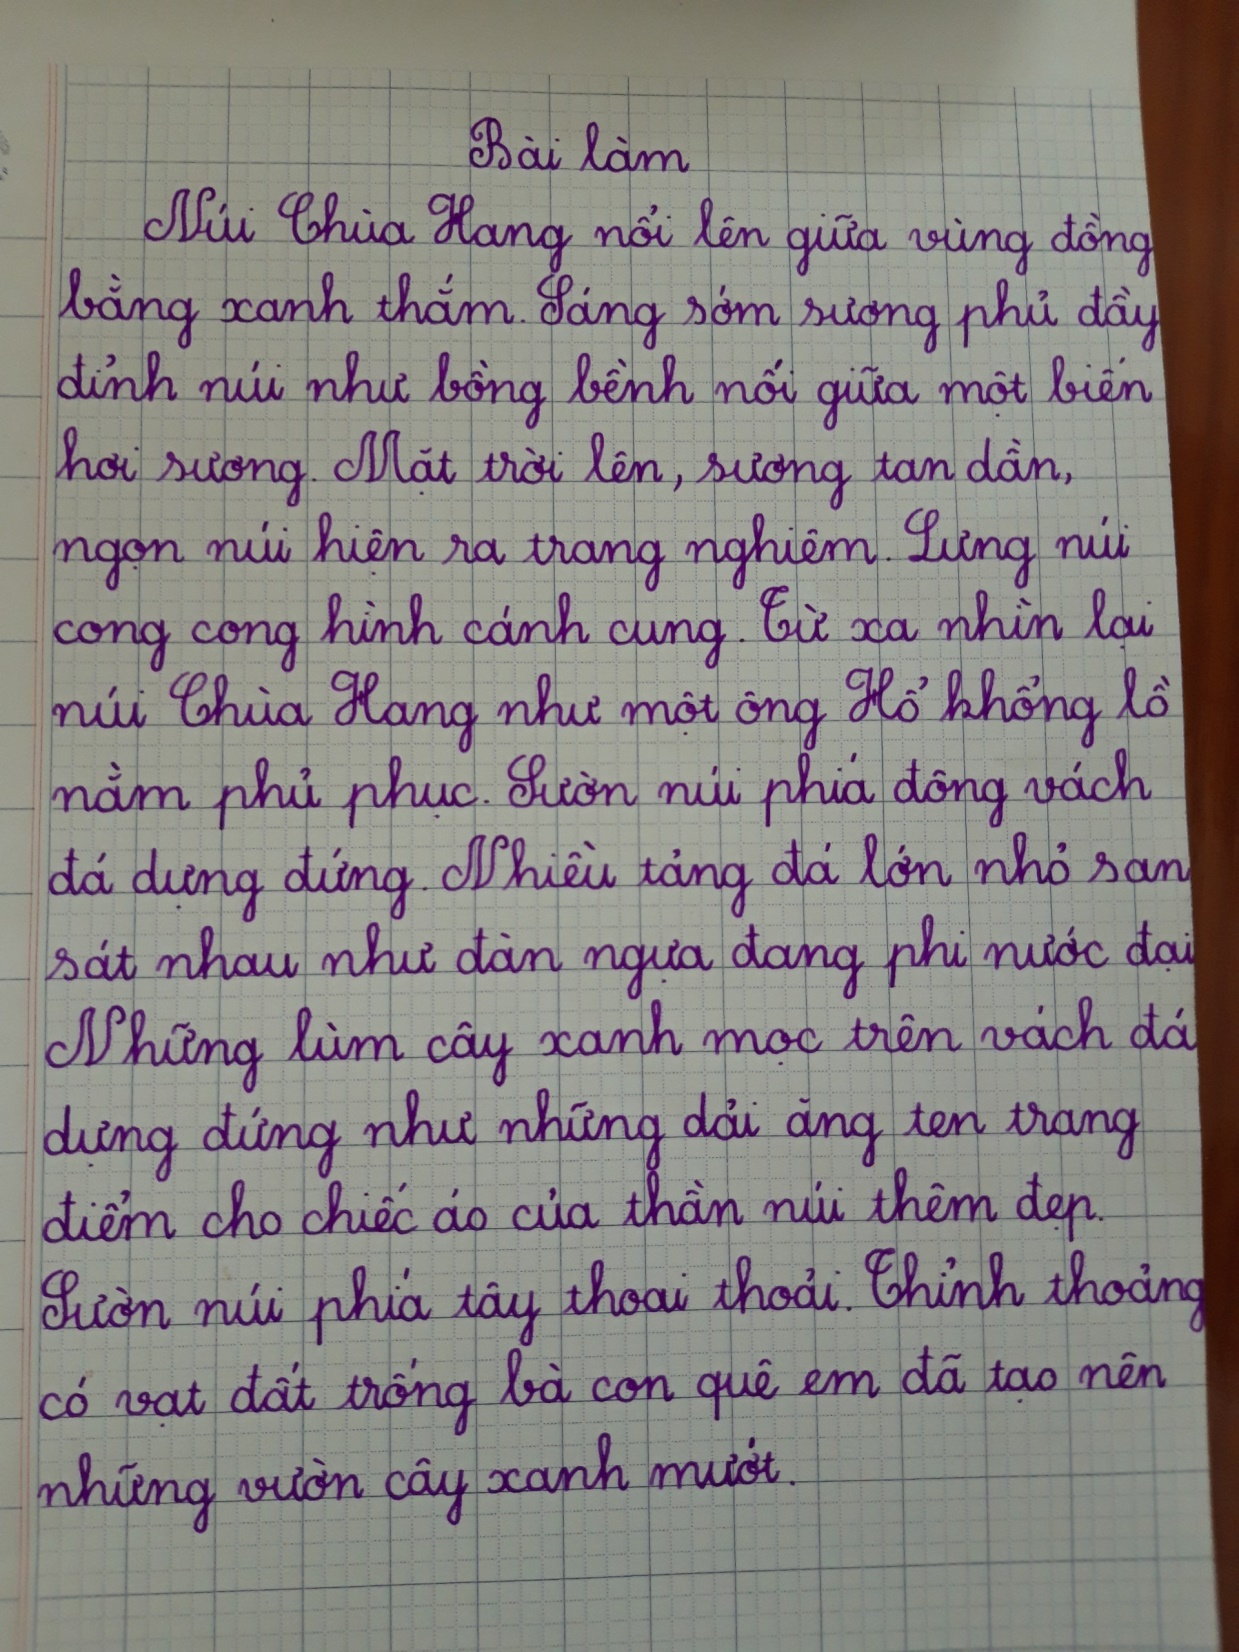 Bài làm
Núi Chùa Hang nổi lên giữa vùng đồng
bằng xanh thắm. Sáng sớm sương phủ đầy
đỉnh núi như bồng bềnh nối giữa một biển
hơi sương. Mặt trời lên, sương tan dần,
ngọn núi hiện ra trang nghiêm. Lưng núi
cong cong hình cánh cung. Từ xa nhìn lại
núi Chùa Hang như một ông Hổ khổng lồ
nằm phủ phục. Sườn núi phiá đông vách
đá dựng đứng. Nhiều tảng đá lớn nhỏ san
sát nhau như đàn ngựa đang phi nước đại
Những lùm cây xanh mọc trên vách đá
dựng đứng như những dải ăng ten trang
điểm cho chiếc áo của thần núi thêm đẹp.
Sườn núi phiá tây thoai thoải. Thỉnh thoảng
có vạt đất trống bà con quê em đã tạo nên
những vườn cây xanh mướt.